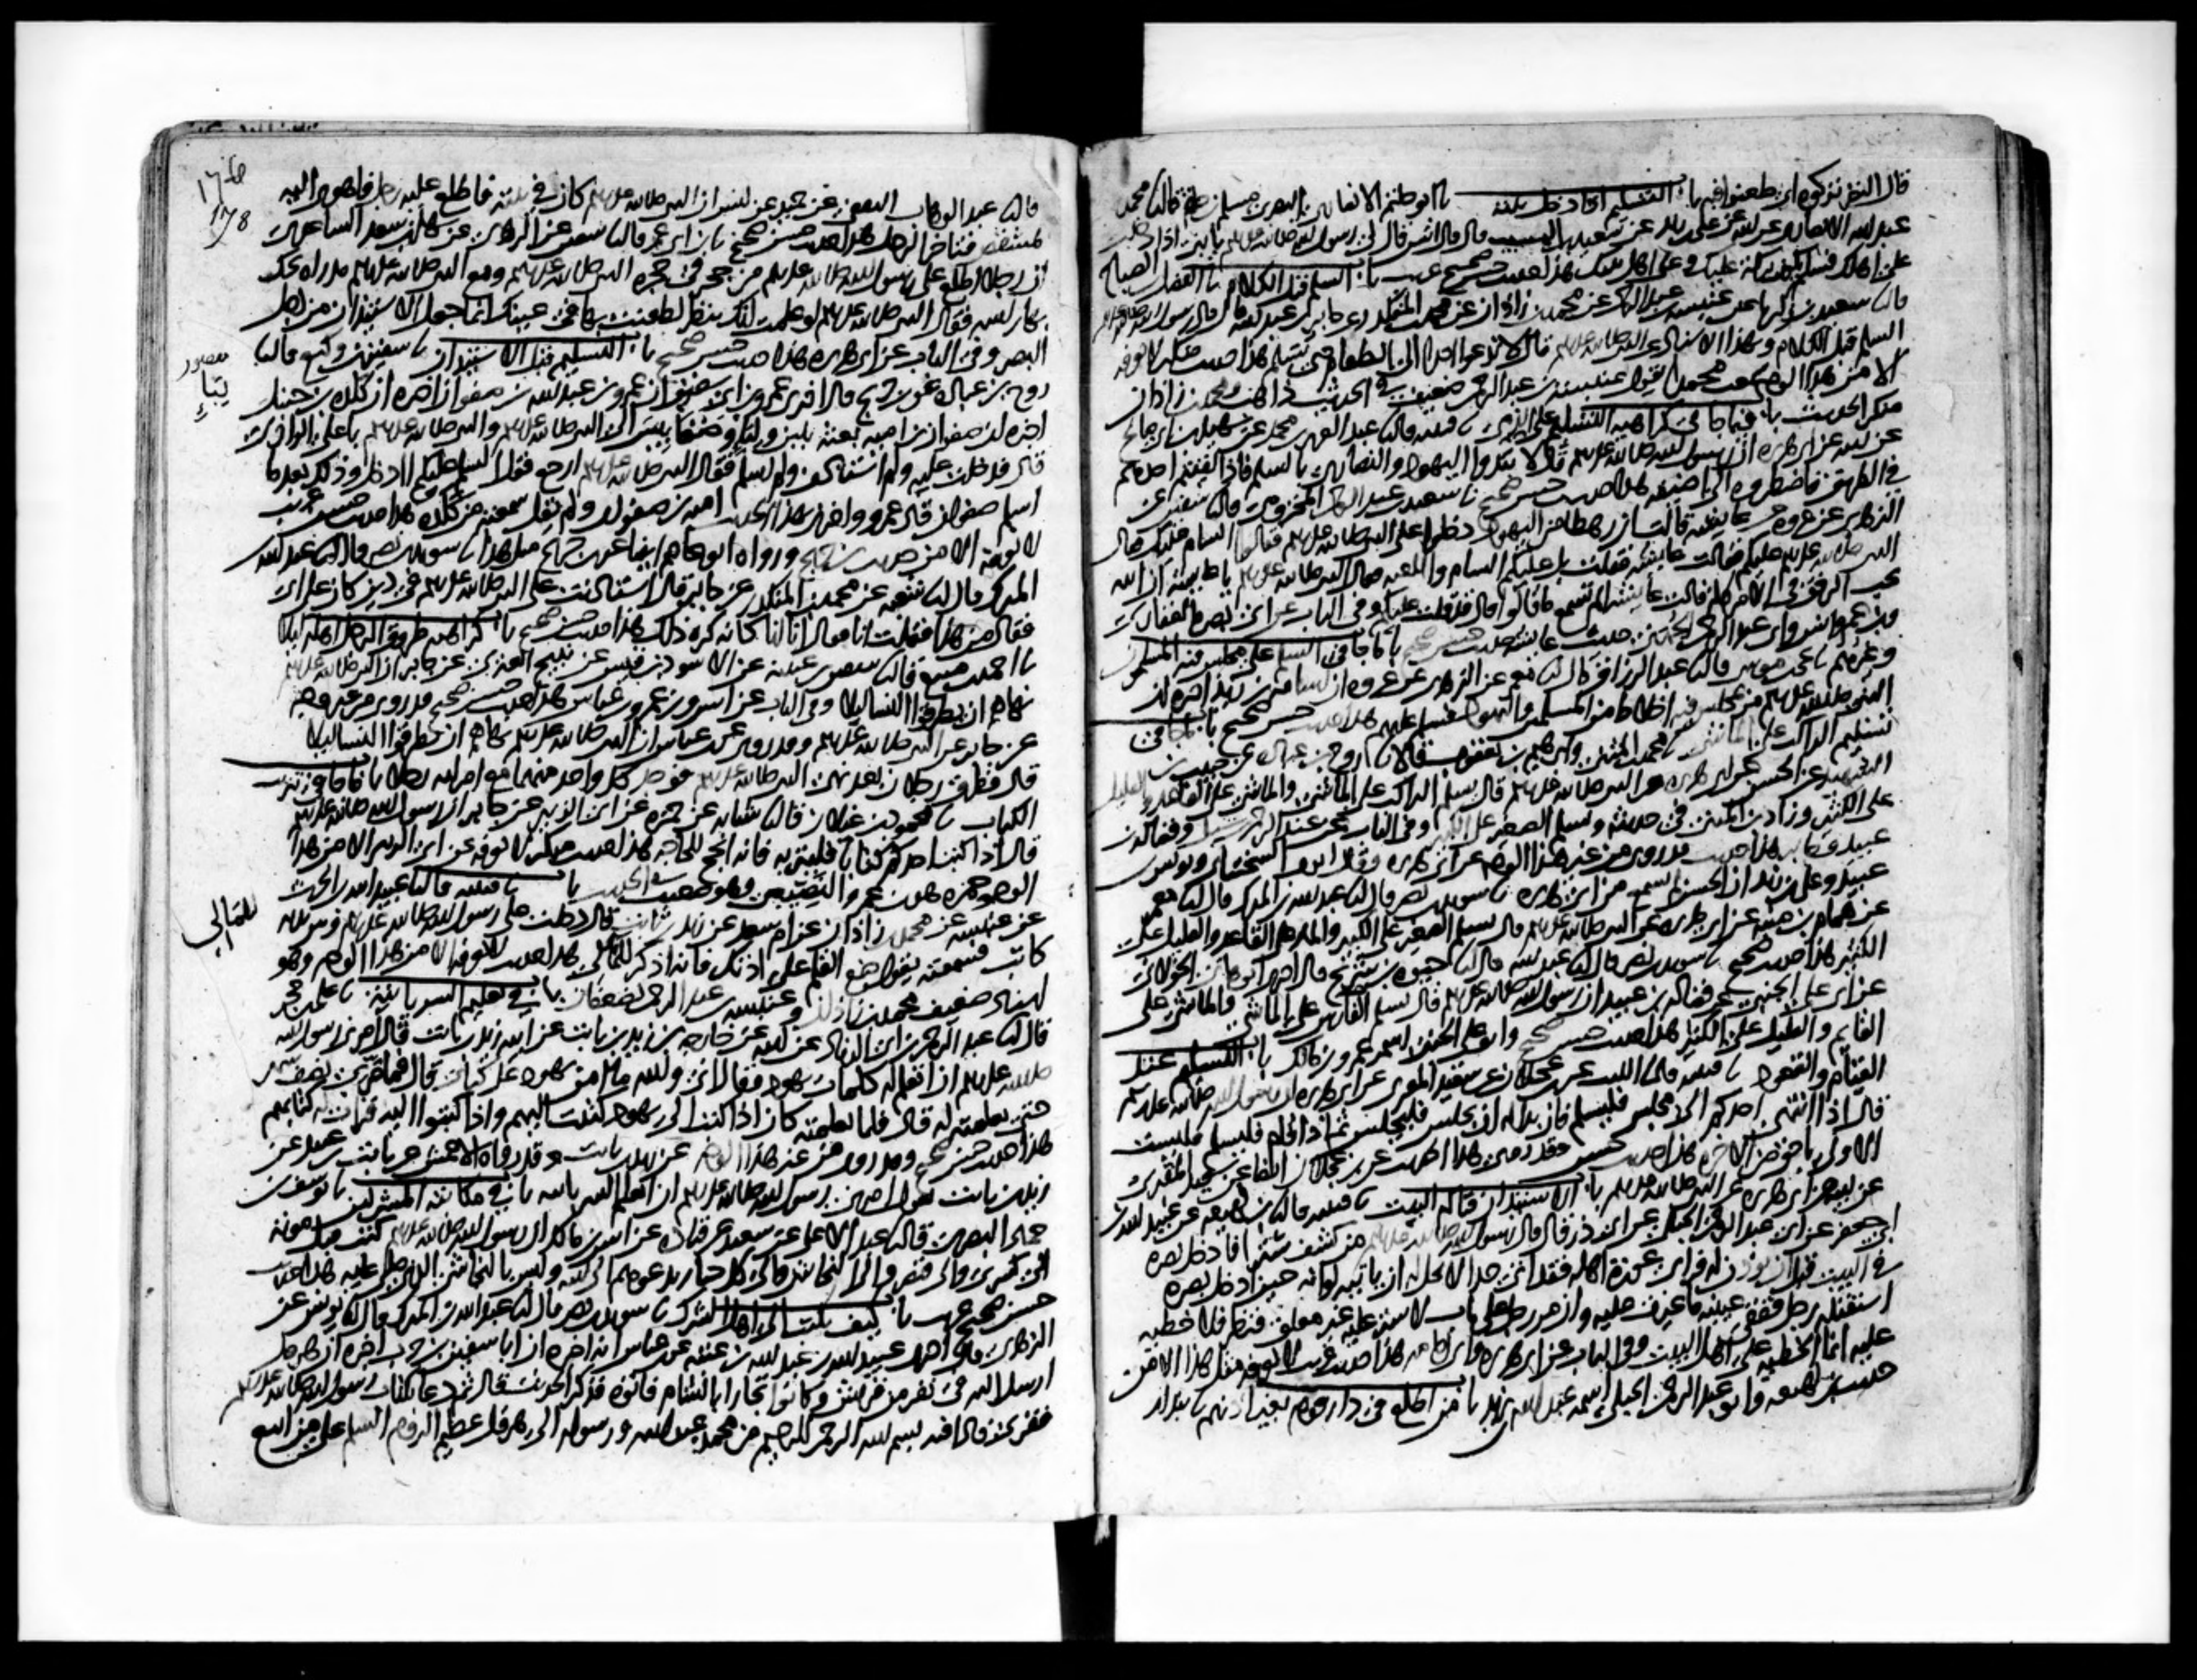 قال النضر نزكوه اي طعنوا فيه باب التسليم اذا دخل بيته نا ابو حاتم الانصاري البصري مسلم بن حاتم قال نا محمد بن
عبد الله الانصاري عن ابيه عن علي بن زيد عن سعيد بن المسيب قال قال انس قال لي رسول الله صلى الله عليه وسلم يا بني اذا دخلت
على اهلك فسلم يكون بركة عليك وعلى اهل بيتك هذا حديث حسن صحيح غريب باب السلام قبل الكلام نا الفضل بن الصباح
قال نا سعيد بن زكريا عن عنبسة بن عبد الرحمن عن محمد بن زاذان عن محمد بن المنكدر عن جابر بن عبد الله قال قال رسول الله صلى الله عليه وسلم
السلم قبل الكلام وبهذا الاسناد عن النبي صلى الله عليه وسلم قال لا تدعوا احدا الى الطعام حتى يسلم هذا حديث منكر لا نعرفه
الا من هذا الوجه سمعت محمدا يقول عنبسة بن عبد الرحمن ضعيف في الحديث ذاهب ومحمد بن زاذان
منكر الحديث باب فيما جا في كراهية التسليم على الذمي نا قتيبة قال نا عبد العزيز بن محمد عن سهيل بن ابي صالح
عن ابيه عن ابي هريرة ان رسول الله صلى الله عليه وسلم قال لا تبدوا اليهود والنصارى بالسلم فاذا لقيتم احدهم
في الطريق فاضطروه الى اضيقه هذا حديث حسن صحيح نا سعيد بن عبد الرحمن المخزومي قال نا سفين عن
الزهري عن عروة عن عايشة قالت ان رهطا من اليهود دخلوا على النبي صلى الله عليه وسلم فقالوا السام عليك فقال
النبي صلى الله عليه وسلم عليكم فقالت عايشة فقلت بل عليكم السام واللعنة فقال النبي صلى الله عليه وسلم يا عايشة ان الله
يحب الرفق في الامر كله قالت عايشة الم تسمع ما قالوا قال قد قلت عليكم وفي الباب عن ابي بصرة الغفاري
وابن عمر وانس وابي عبد الرحمن الجهني حديث عايشة حديث حسن صحيح باب ما جا في السلم على مجلس فيه المسلمون
وغيرهم نا يحيى بن موسى قال نا عبد الرزاق قال نا معمر عن الزهري عن عروة ان اسامة بن زيد اخبره ان
النبي صلى الله عليه وسلم مر بمجلس فيه اخلاط من المسلمين واليهود فسلم عليهم هذا حديث حسن صحيح باب ما جا في
تسليم الراكب على الماشي نا محمد بن المثنى وابرهيم بن يعقوب قالا نا روح بن عبادة عن حبيب بن
الشهيد عن الحسن عن ابي هريرة عن النبي صلى الله عليه وسلم قال يسلم الراكب على الماشي والماشي على القاعد والقليل
على الكثير وزاد ابن المثنى في حديثه ويسلم الصغير على الكبير وفي الباب عن عبد الرحمن بن شبل وفضالة بن
عبيد وجابر هذا حديث قد روي من غير هذا الوجه عن ابي هريرة وقال ايوب السختياني ويونس بن
عبيد وعلي بن زيد ان الحسن لم يسمع من ابي هريرة نا سويد بن نصر قال نا عبد الله بن المبارك قال نا معمر
عن همام بن منبه عن ابي هريرة عن النبي صلى الله عليه وسلم قال يسلم الصغير على الكبير والمار على القاعد والقليل على
الكثير هذا حديث صحيح نا سويد بن نصر قال نا عبد الله قال نا حيوة بن شريح قال اخبرني ابو هاني الخولاني
عن ابي علي الجنبي عن فضالة بن عبيد ان رسول الله صلى الله عليه وسلم قال يسلم الفارس على الماشي والماشي على
القايم والقليل على الكثير هذا حديث حسن صحيح وابو علي الجنبي اسمه عمرو بن مالك باب التسليم عند
القيام والقعود نا قتيبة قال نا الليث عن ابن عجلان عن سعيد المقبري عن ابي هريرة ان رسول الله صلى الله عليه وسلم
قال اذا انتهى احدكم الى مجلس فليسلم فان بدا له ان يجلس فليجلس ثم اذا قام فليسلم فليست
الاولى باحق من الاخرة هذا حديث حسن وقد روي هذا الحديث عن ابن عجلان ايضا عن سعيد المقبري
عن ابيه عن ابي هريرة عن النبي صلى الله عليه وسلم باب الاستيذان قبالة البيت نا قتيبة قال نا ابن لهيعة عن عبيد الله بن
ابي جعفر عن ابي عبد الرحمن الحبلي عن ابي ذر قال قال رسول الله صلى الله عليه وسلم من كشف سترا فادخل بصره
في البيت قبل ان يوذن له فراى عورة اهله فقد اتى حدا لا يحل له ان ياتيه لو انه حين ادخل بصره
استقبله رجل ففقا عينيه ما غيرت عليه وان مر رجل على باب لا ستر عليه غير مغلق فنظر فلا خطية
عليه انما الخطية على اهل البيت وفي الباب عن ابي هريرة وابي امامة هذا حديث غريب لا نعرفه مثل هذا الا من
حديث ابن لهيعة وابو عبد الرحمن الحبلي اسمه عبد الله بن يزيد باب من اطلع في دار قوم بغير اذنهم نا بندار
قال نا عبد الوهاب الثقفي عن حميد عن انس ان النبي صلى الله عليه وسلم كان في بيته فاطلع عليه رجل فاهوى اليه
بمشقص فتاخر الرجل هذا حديث حسن صحيح نا ابن ابي عمر قال نا سفين عن الزهري عن سهل بن سعد الساعدي
ان رجلا اطلع على رسول الله صلى الله عليه وسلم من جحر في حجرة النبي صلى الله عليه وسلم ومع النبي صلى الله عليه وسلم مدراة يحك
بها راسه فقال النبي صلى الله عليه وسلم لو علمت انك تنظر لطعنت بها في عينك انما جعل الاستيذان من اجل
البصر وفي الباب عن ابي هريرة هذا حديث حسن صحيح باب التسليم قبل الاستيذان نا سفين بن وكيع قال نا
روح بن عبادة عن ابن جريج قال اخبرني عمرو بن ابي سفين ان عمرو بن عبد الله بن صفوان اخبره ان كلدة بن حنبل
اخبره ان صفوان بن امية بعثه بلبن ولبا وضغابيس الى النبي صلى الله عليه وسلم والنبي صلى الله عليه وسلم باعلى الوادي
قال فدخلت عليه ولم استاذن ولم اسلم فقال النبي صلى الله عليه وسلم ارجع فقل السلم عليكم اادخل وذلك بعد ما
اسلم صفوان قال عمرو واخبرني بهذا الحديث امية بن صفوان ولم يقل سمعته من كلدة هذا حديث حسن غريب
لا نعرفه الا من حديث ابن جريج ورواه ابو عاصم ايضا عن ابن جريج مثل هذا نا سويد بن نصر قال نا عبد الله بن
المبارك قال نا شعبة عن محمد بن المنكدر عن جابر قال استاذنت على النبي صلى الله عليه وسلم في دين كان على ابي
فقال من هذا فقلت انا فقال انا انا كانه كره ذلك هذا حديث حسن صحيح باب كراهية طروق الرجل اهله ليلا
نا احمد بن منيع قال نا سفين بن عيينة عن الاسود بن قيس عن نبيح العنزي عن جابر ان النبي صلى الله عليه وسلم
نهاهم ان يطرقوا النسا ليلا وفي الباب عن انس وابن عمر وابن عباس هذا حديث حسن صحيح قد روي من غير وجه
عن جابر عن النبي صلى الله عليه وسلم وقد روي عن ابن عباس ان النبي صلى الله عليه وسلم نهاهم ان يطرقوا النسا ليلا
قال فطرق رجلان بعد نهي النبي صلى الله عليه وسلم فوجد كل واحد منهما مع امراته رجلا باب ما جا في تتريب
الكتاب نا محمود بن غيلان قال نا شبابة عن حمزة عن ابي الزبير عن جابر ان رسول الله صلى الله عليه وسلم
قال اذا كتب احدكم كتابا فليتربه فانه انجح للحاجة هذا حديث منكر لا نعرفه عن ابي الزبير الا من هذا
الوجه وحمزة هو ابن عمرو النصيبي وهو ضعيف في الحديث باب نا قتيبة قال نا عبيد الله بن الحرث
عن عنبسة عن محمد بن زاذان عن ام سعد عن زيد بن ثابت قال دخلت على رسول الله صلى الله عليه وسلم وبين يديه
كاتب فسمعته يقول ضع القلم على اذنك فانه اذكر للمملي هذا حديث لا نعرفه الا من هذا الوجه وهو
اسناد ضعيف محمد بن زاذان وعنبسة بن عبد الرحمن يضعفان باب في تعليم السريانية نا علي بن حجر
قال نا عبد الرحمن بن ابي الزناد عن ابيه عن خارجة بن زيد بن ثابت عن ابيه زيد بن ثابت قال امرني رسول الله
صلى الله عليه وسلم ان اتعلم له كلمات يهود فقال اني والله ما امن يهود على كتابي قال فما مر بي نصف شهر
حتى تعلمته له قال فلما تعلمته كان اذا كتب الى يهود كتبت اليهم واذا كتبوا اليه قرات له كتابهم
هذا حديث حسن صحيح وقد روي من غير هذا الوجه عن زيد بن ثابت وقد رواه الاعمش عن ثابت بن عبيد عن
زيد بن ثابت يقول امرني رسول الله صلى الله عليه وسلم ان اتعلم السريانية باب في مكاتبة المشركين نا يوسف بن
حماد البصري قال نا عبد الاعلى عن سعيد عن قتادة عن انس بن مالك ان رسول الله صلى الله عليه وسلم كتب قبل موته
الى كسرى والى قيصر والى النجاشي والى كل جبار يدعوهم الى الله وليس بالنجاشي الذي صلى عليه هذا حديث
حسن صحيح غريب باب كيف يكتب الى اهل الشرك نا سويد بن نصر قال نا عبد الله بن المبارك قال نا يونس عن
الزهري قال اخبرني عبيد الله بن عبد الله بن عتبة عن ابن عباس انه اخبره ان ابا سفين بن حرب اخبره ان هرقل
ارسل اليه في نفر من قريش وكانوا تجارا بالشام فاتوه فذكر الحديث قال ثم دعا بكتاب رسول الله صلى الله عليه وسلم
فقري فاذا فيه بسم الله الرحمن الرحيم من محمد عبد الله ورسوله الى هرقل عظيم الروم السلم على من اتبع
178